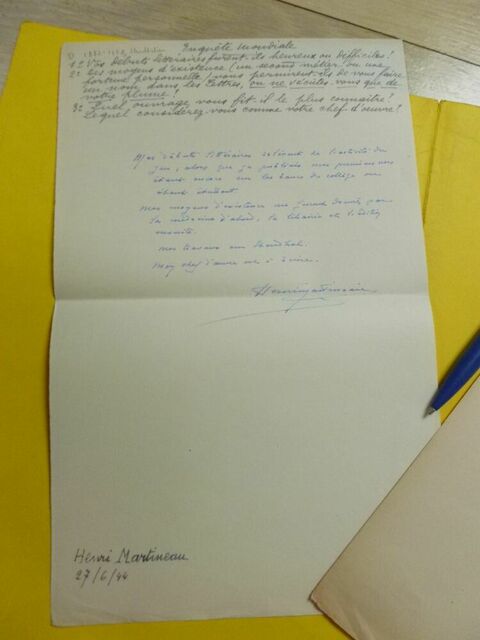 Enquête Mondiale
1: Vos Débuts littéraires furent-ils heureux ou difficiles?
2: Les moyens d'existence (un second métier ou une
fortune personnelle) vous permirent-ils de vous faire
un nom dans les Lettres, ou ne vécûtes-vous que de
votre plume?
3: Quel ouvrage vous fit-il le plus connaître?
Lequel considérez-vous comme votre chef d'œuvre?
Mes débuts littéraires
jeu, alors que je publiais mes premiers vers
étant encore sur les bancs du collège ou
étant étudiant.
mes moyens d'existence me furent donnés par
la médecine d'abord, la librairie et l'édition
ensuite.
mes travaux sur Stendhal.
Mon chef d'œuvre est à écrire.
Henri Martineau
Henri Martineau
27/6/44